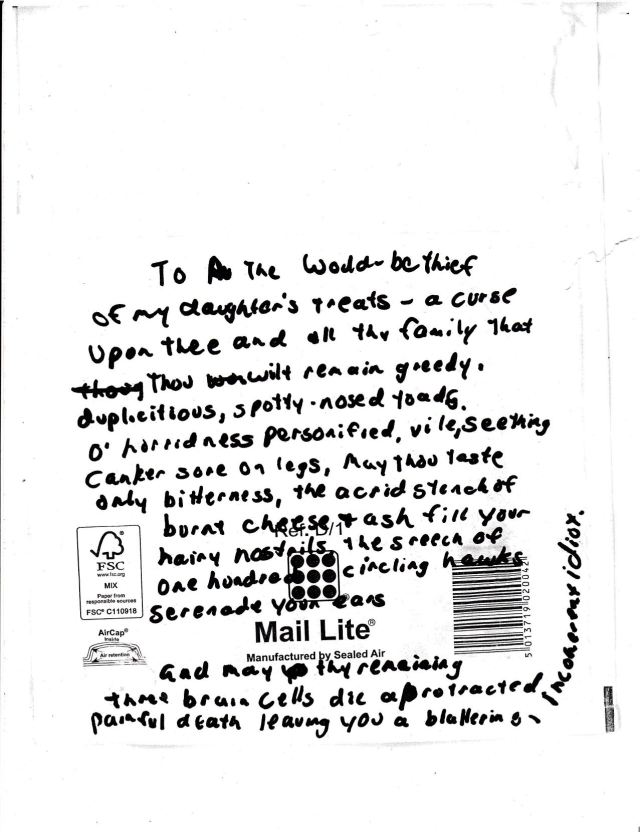 To The Would-be thief
of my daughter's treats - a curse
Upon thee and all thy family that
thoug Thou wilt remain greedy.
duplicitious, spotty-nosed toads.
O' horridness personified, vile, Seething
Canker sore on legs, May thou taste
only bitterness, the acrid stench of
burnt cheese + ash fill your
Ref: D/1
hairy nostrils, the sreech of
one hundred circling hawks
Serenade your ears
And may thy remaining
three brain cells die a protracted
painful death leaving you a blattering
incoherent idiot.
FSC
www.fsc.org
MIX
Paper from
responsible sources
FSC® C110918
AirCap®
Inside
Air retention
Mail Lite®
Manufactured by Sealed Air
5 013719 020042